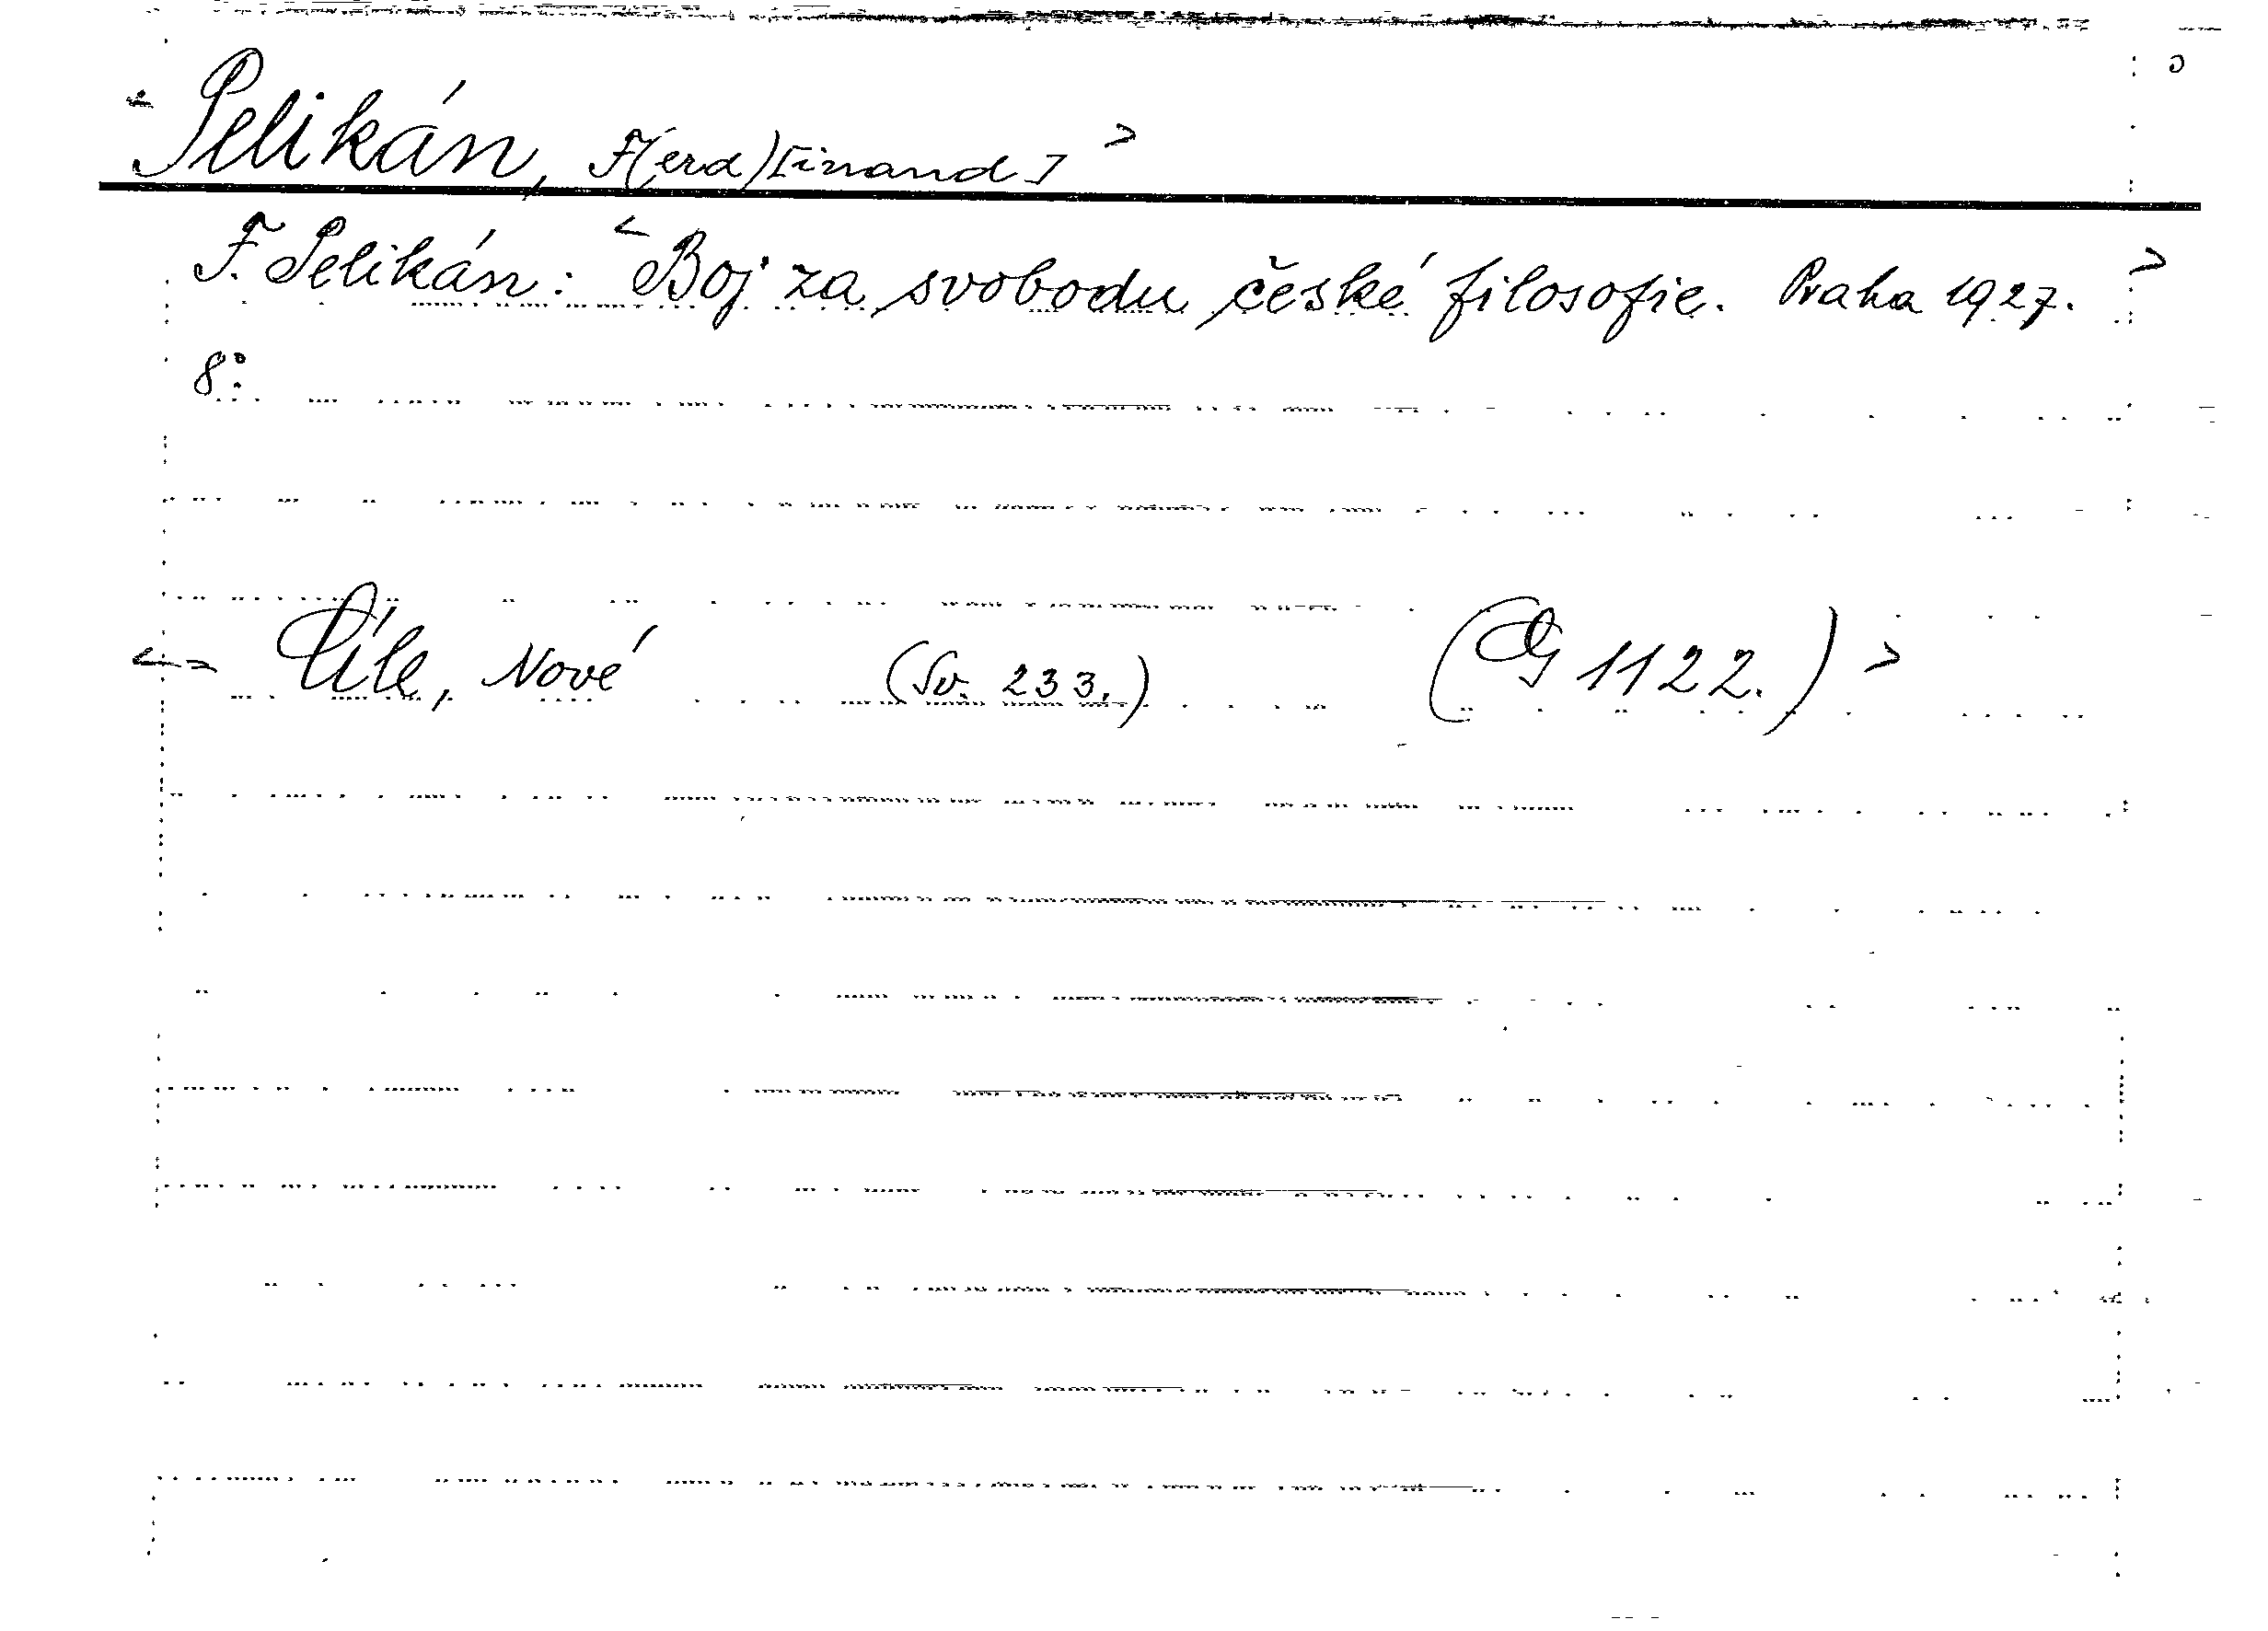 < Pelikán, F(erd)[inand] >
F. Pelikán: < Boj za svobodu české filosofie. Praha 1927. >
8°.
<-> Cíle, Nové (Sv. 233.) (G 1122.) >